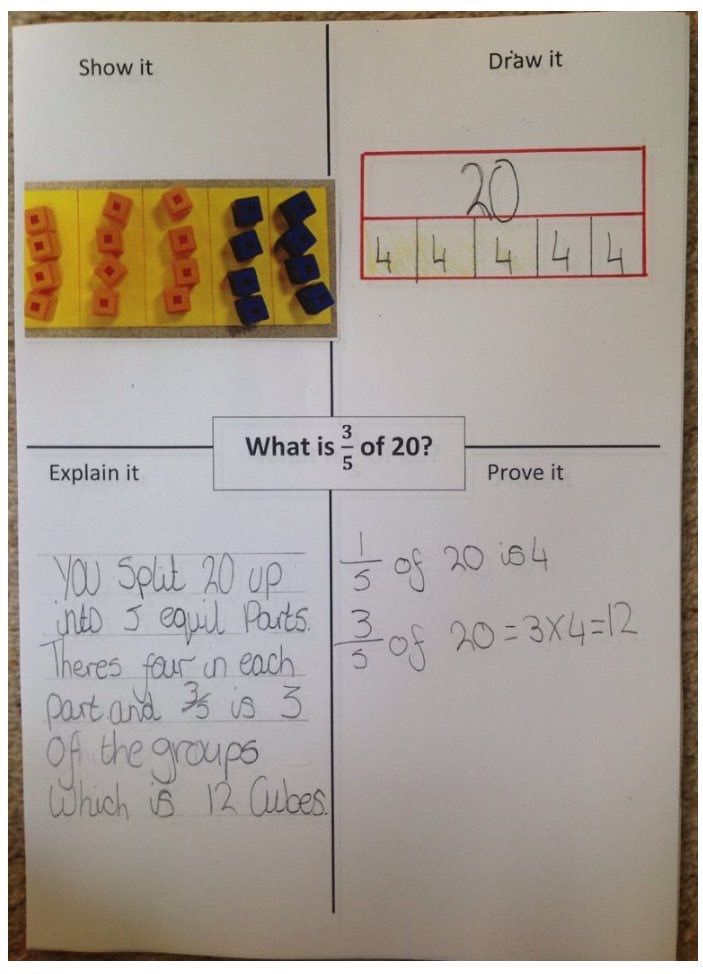 Show it
Draw it
20
4 4 4 4 4
What is 3/5 of 20?
Explain it
Prove it
You split 20 up
into 5 equil Parts.
Theres four in each
part and 3/5 is 3
of the groups
Which is 12 Cubes.
1/5 of 20 is 4
3/5 of 20 = 3x4=12